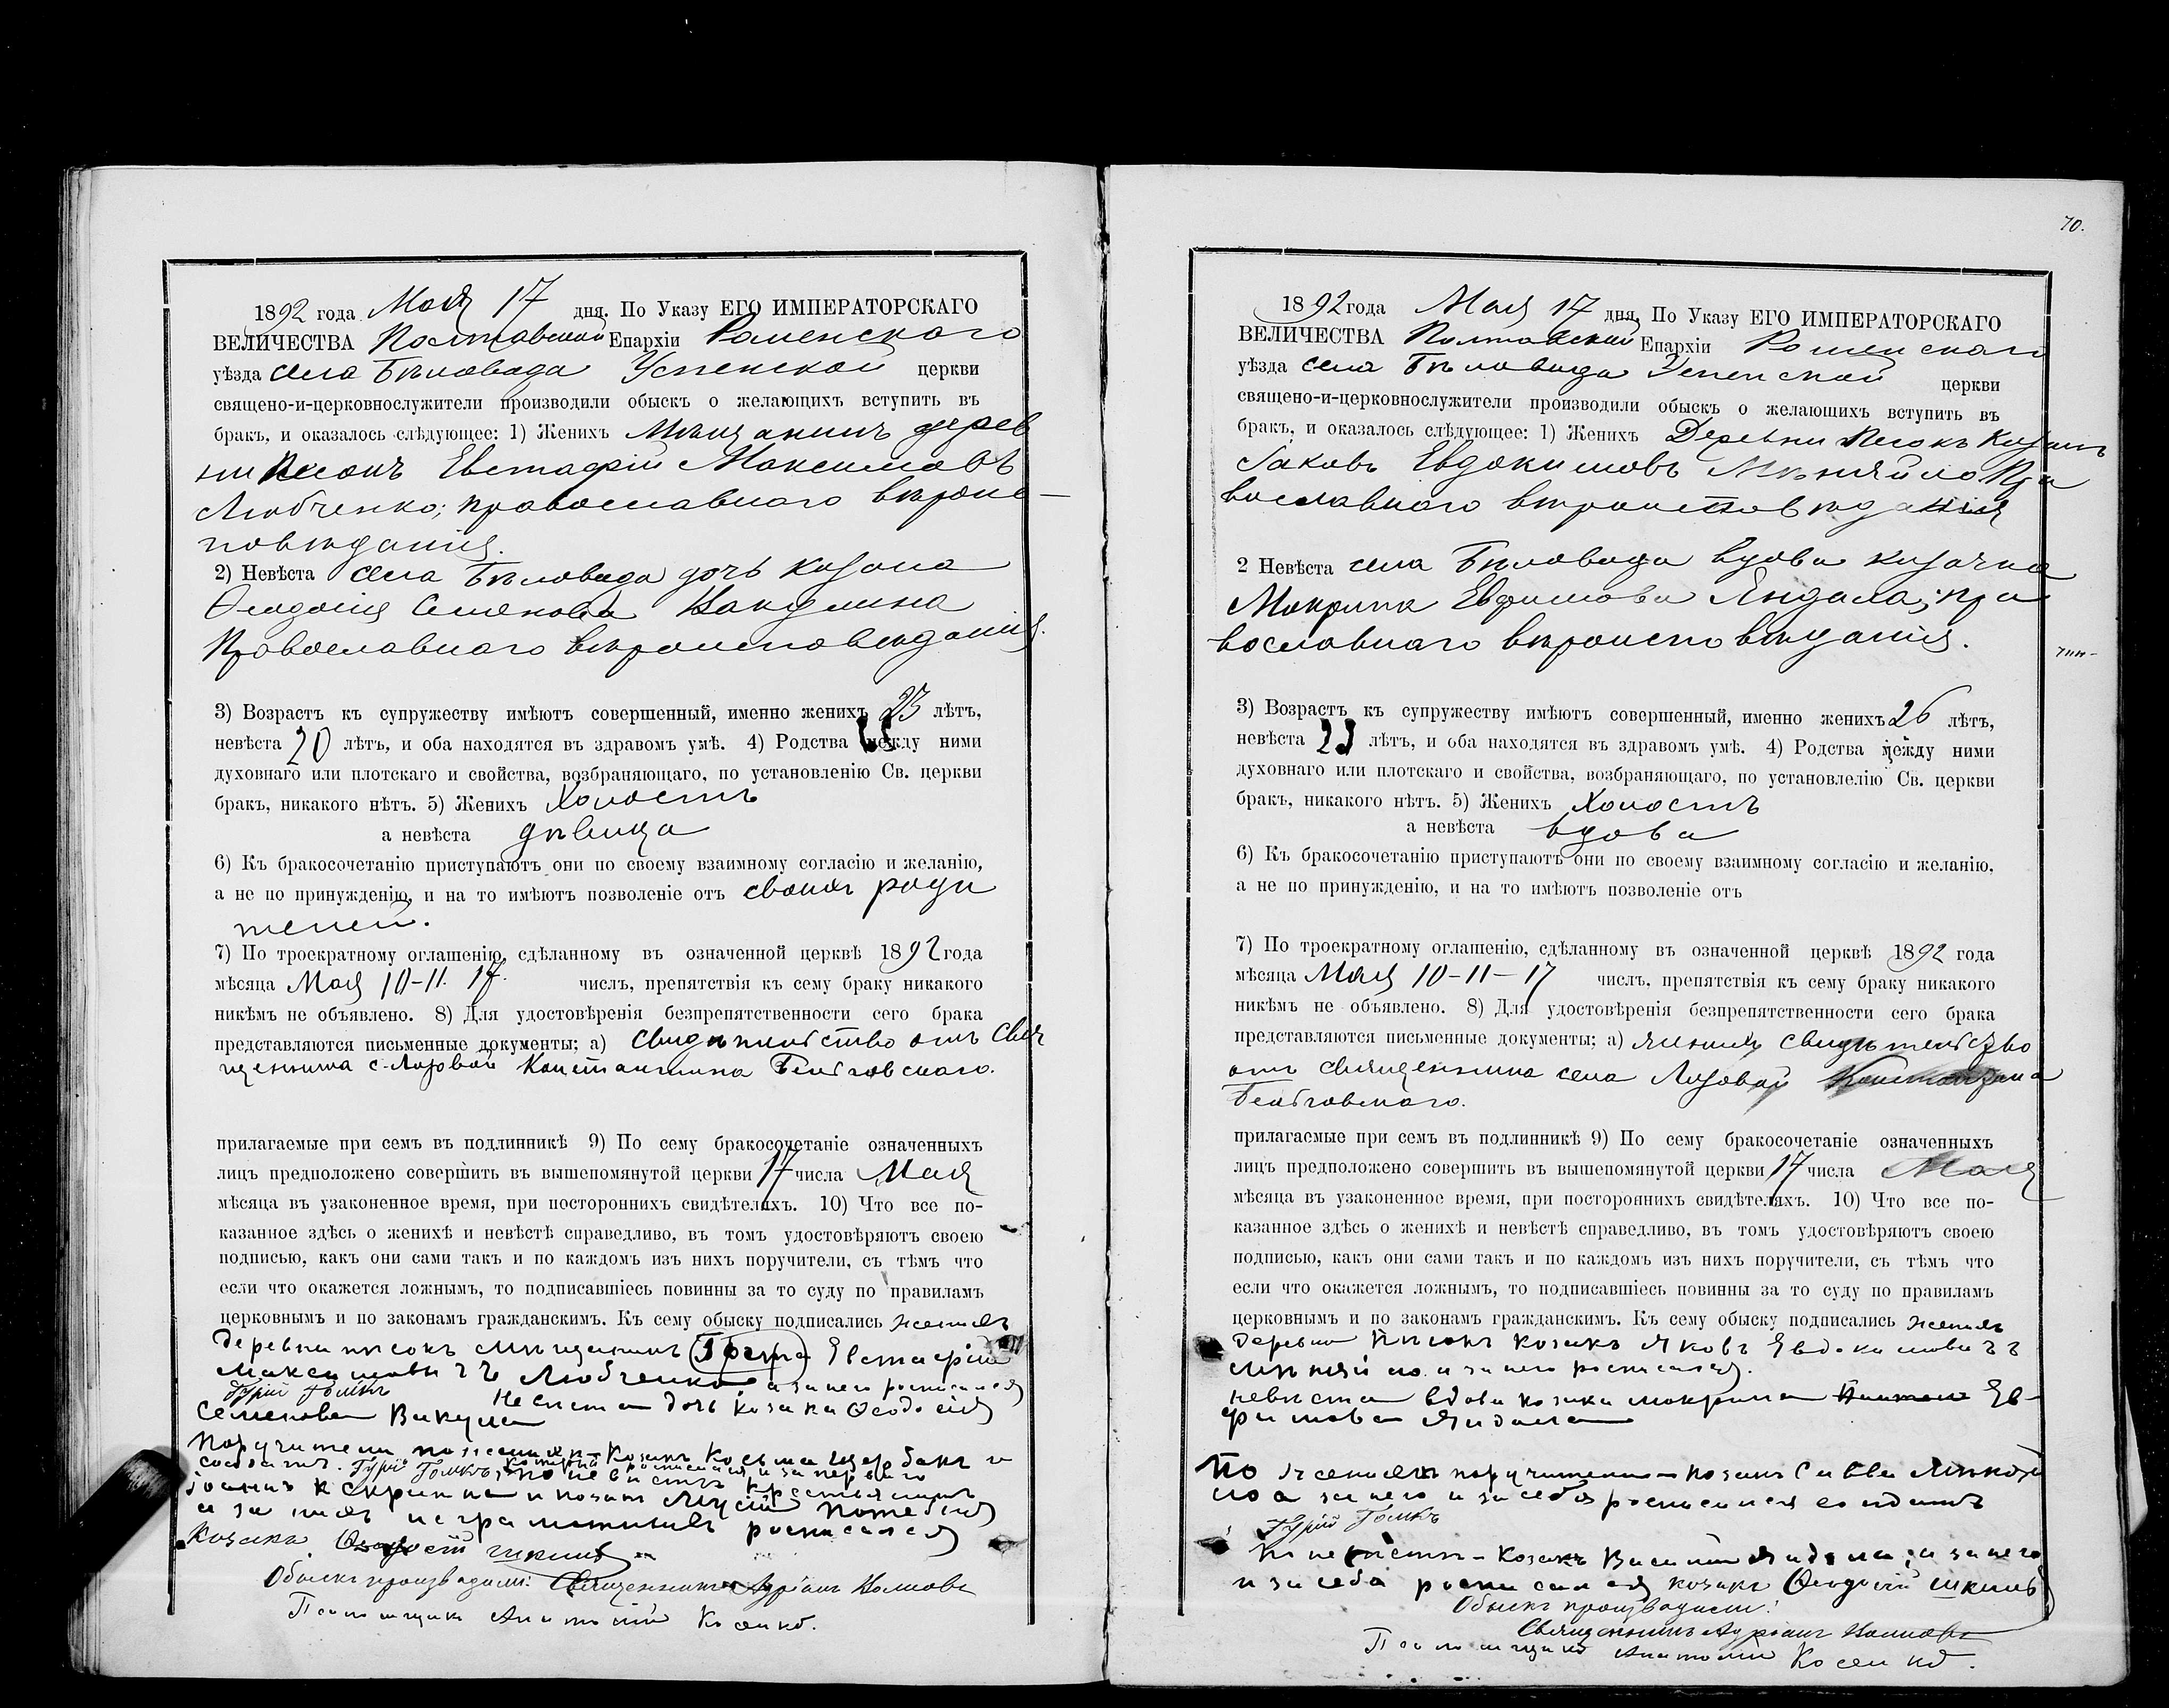 1892 года Мая 17 дня. По Указу ЕГО ИМПЕРАТОРСКАГО
ВЕЛИЧЕСТВА Полтавской Епархіи Роменского
уѣзда села Бѣловода Успенской церкви
священо-и-церковнослужители производили обыскъ о желающихъ вступить въ
бракъ, и оказалось слѣдующее: 1) Женихъ Мѣщанинъ дерев
ни Песокъ Евстафій Максимовъ
Любченко; православнаго вѣроис-
повѣданія.
2) Невѣста села Бѣловода дочь козака
Ѳеодосія Семенова Вакулина
Православнаго вѣроисповѣданія.
3) Возрастъ къ супружеству имѣютъ совершенный, именно женихъ 23 лѣтъ,
невѣста 20 лѣтъ, и оба находятся въ здравомъ умѣ. 4) Родства между ними
духовнаго или плотскаго и свойства, возбраняющаго, по установленію Св. церкви
бракъ, никакого нѣтъ. 5) Женихъ Холостъ
а невѣста дѣвица
6) Къ бракосочетанію приступаютъ они по своему взаимному согласію и желанію,
а не по принужденію, и на то имѣютъ позволеніе отъ своихъ роди
телей.
7) По троекратному оглашенію, сдѣланному въ означенной церквѣ 1892 года
мѣсяца Мая 10-11. 17. числъ, препятствія къ сему браку никакого
никѣмъ не объявлено. 8) Для удостовѣренія безпрепятственности сего брака
представляются письменные документы; а) Свидѣтельство отъ Свя
щенника с. Лозовой Константина
прилагаемые при семъ въ подлинникѣ 9) По сему бракосочетаніе означенныхъ
лицъ предположено совершить въ вышепомянутой церкви 17 числа Мая
мѣсяца въ узаконенное время, при постороннихъ свидѣтеляхъ. 10) Что все по-
казанное здѣсь о женихѣ и невѣстѣ справедливо, въ томъ удостовѣряютъ своею
подписью, какъ они сами такъ и по каждомъ изъ нихъ поручители, съ тѣмъ что
если что окажется ложнымъ, то подписавшіесь повинны за то суду по правиламъ
церковнымъ и по законамъ гражданскимъ. Къ сему обыску подписались женихъ
деревни писокъ мищанинъ Евстафій
Максимовичъ Любченко а за него росписался
Гурій Гомкъ Невиста дочь козака Ѳеодосія
Семенова Вакула
Поручители по женихѣ козакъ Косьма Щербакъ и
солдатъ Гурій Гомкъ по невистѣ
и козакъ Мусій
и за нихъ неграмотныхъ росписался
Козакъ Ѳеодосій
Обыскъ производили: Священникъ Адріанъ
Псаломщикъ Анатолій Косенко.
70.
1892 года Мая 17 дня. По Указу ЕГО ИМПЕРАТОРСКАГО
ВЕЛИЧЕСТВА Полтавской Епархіи Роменскаго
уѣзда села Бѣловода Успенской церкви
священо-и-церковнослужители производили обыскъ о желающихъ вступить въ
бракъ, и оказалось слѣдующее: 1) Женихъ Деревни Песокъ Козакъ
Іаковъ Евдокимовъ Мѣняйло Пра
вославнаго вѣроисповѣданія
2 Невѣста села Бѣловода вдова козачка
Мокрина Евфимова Яндала; пра
вославнаго вѣроисповѣданія.
3) Возрастъ къ супружеству имѣютъ совершенный, именно женихъ 26 лѣтъ,
невѣста 23 лѣтъ, и оба находятся въ здравомъ умѣ. 4) Родства между ними
духовнаго или плотскаго и свойства, возбраняющаго, по установлелію Св. церкви
бракъ, никакого нѣтъ. 5) Женихъ Холостъ
а невѣста вдова
6) Къ бракосочетанію приступаютъ они по своему взаимному согласію и желанію,
а не по принужденію, и на то имѣютъ позволеніе отъ
7) По троекратному оглашенію, сдѣланному въ означенной церквѣ 1892 года
мѣсяца Мая 10-11-17 числъ, препятствія къ сему браку никакого
никѣмъ не объявлено. 8) Для удостовѣренія безпрепятственности сего брака
представляются письменные документы; а) Свидѣтельство
отъ священника села Лозовой Константина
прилагаемые при семъ въ подлинникѣ 9) По сему бракосочетаніе означенныхъ
лицъ предположено совершить въ вышепомянутой церкви 17 числа Мая
мѣсяца въ узаконенное время, при постороннихъ свидѣтеляхъ. 10) Что все по-
казанное здѣсь о женихѣ и невѣстѣ справедливо, въ томъ удостовѣряютъ своею
подписью, какъ они сами такъ и по каждомъ изъ нихъ поручители, съ тѣмъ что
если что окажется ложнымъ, то подписавшіесь повинны за то суду по правиламъ
церковнымъ и по законамъ гражданскимъ. Къ сему обыску подписались женихъ
деревни козакъ Яковъ Евдокимовичъ
и за него росписался.
невиста вдова козака мокрина Ев-
фимова Яндала
По женихѣ поручители козакъ Савва
а за него и за себя росписался солдатъ
Гурій Гомкъ
По невистѣ козакъ Василій Яндала; а за него
и за себя росписался козакъ Ѳеодосій
Обыскъ производили:
Священникъ Адріанъ
Псаломщикъ Анатолій Косенко.